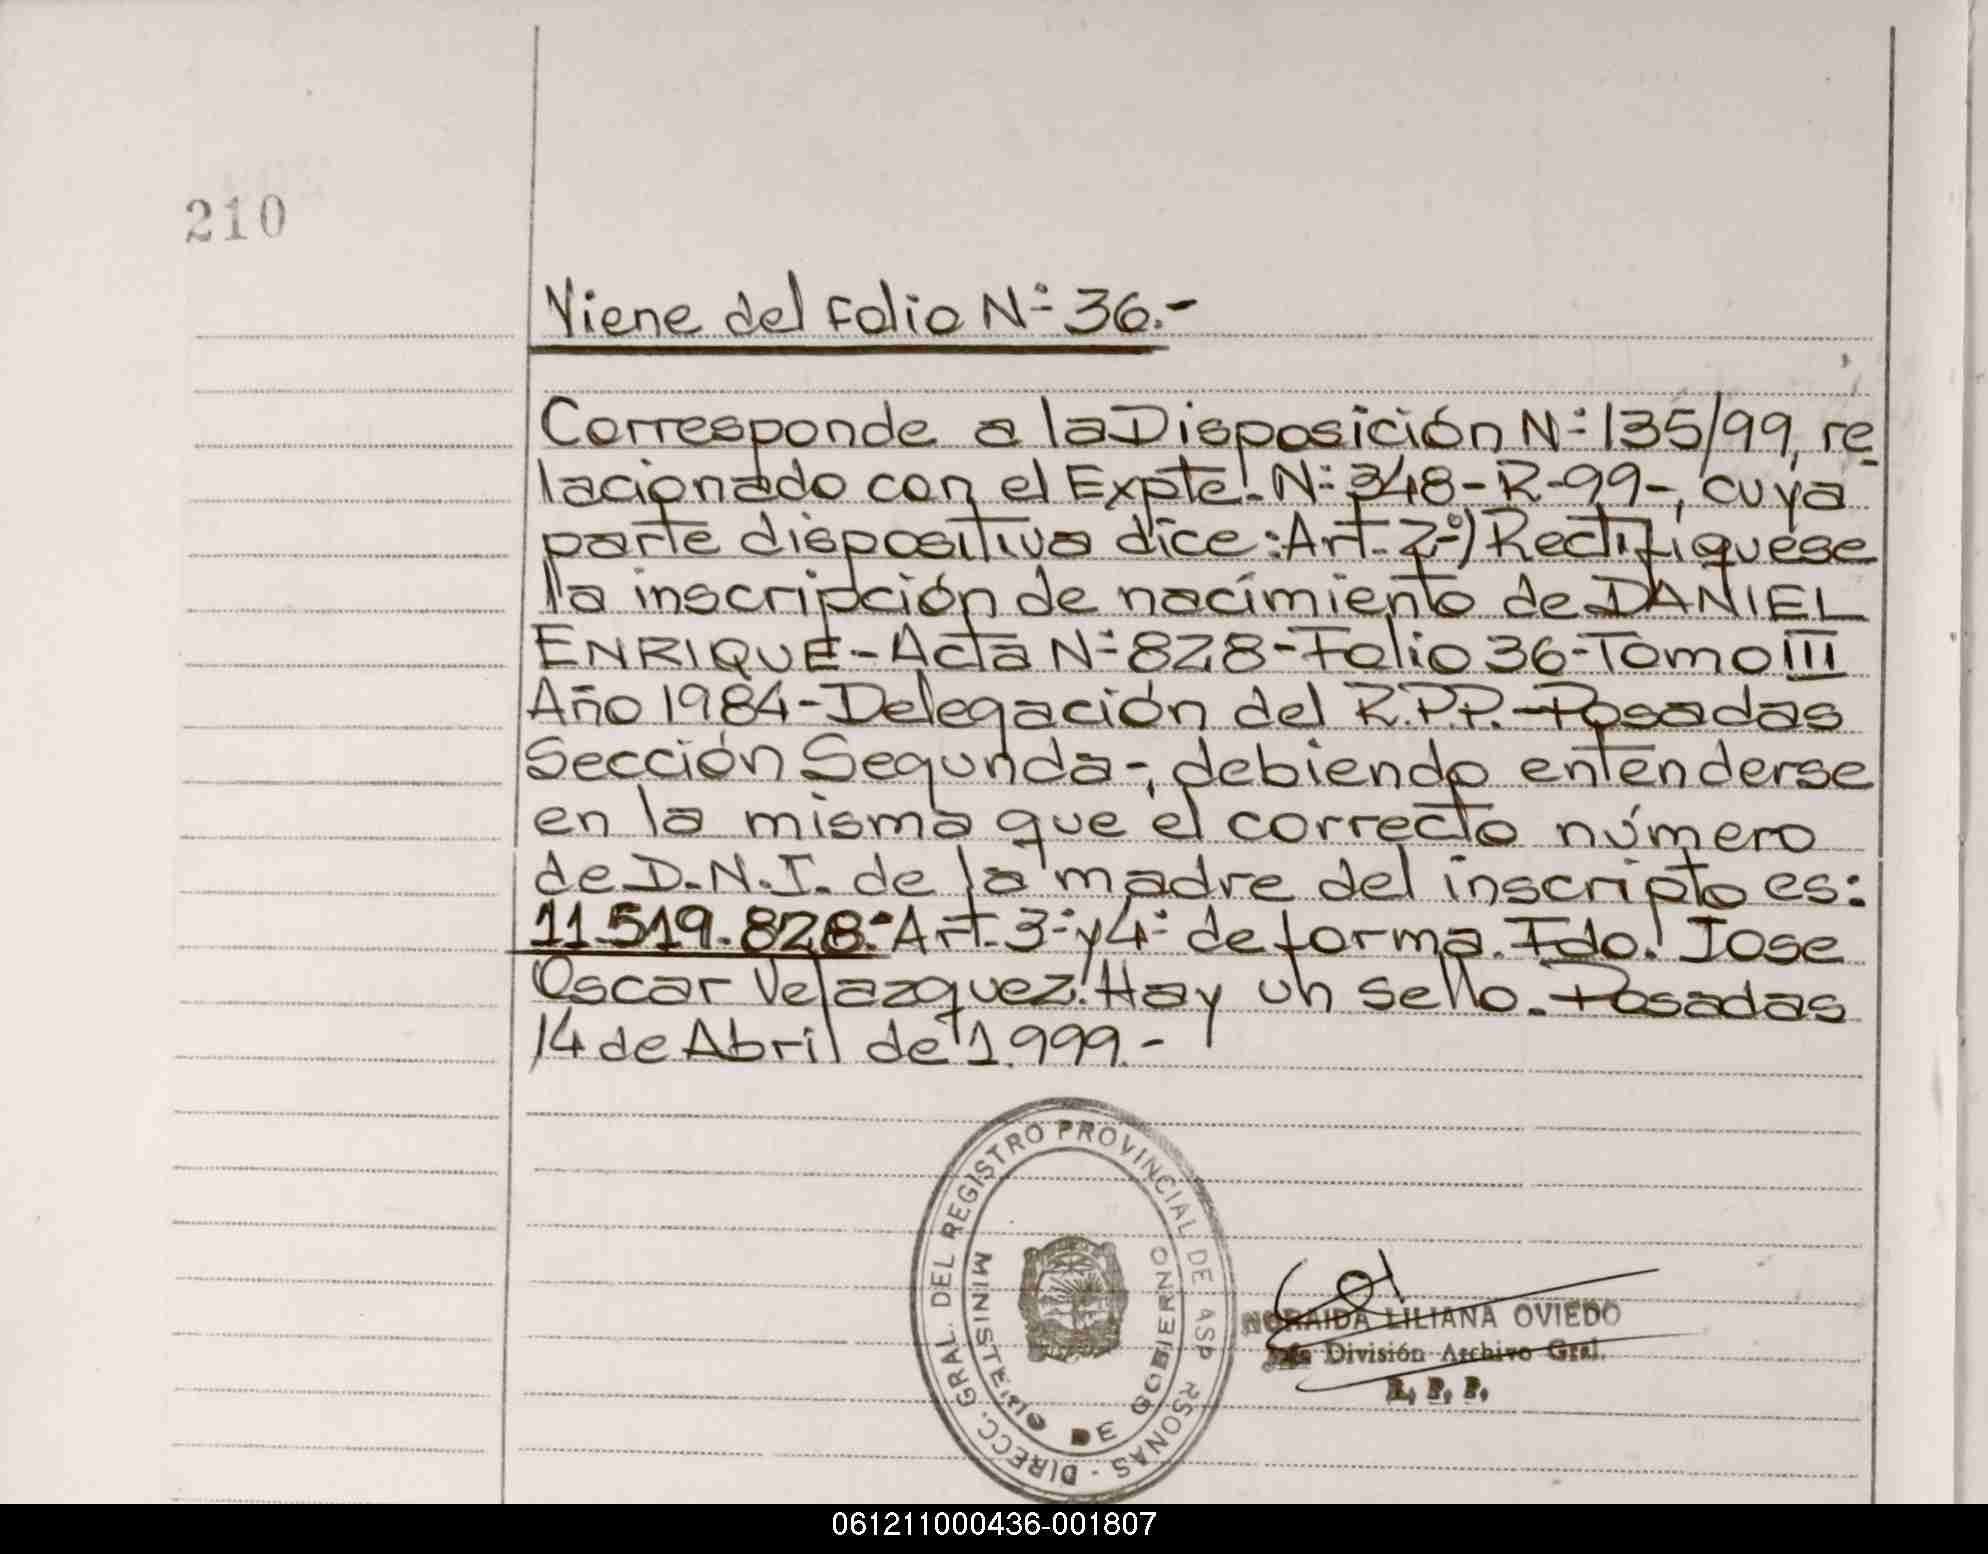 210
Viene del folio Nº 36.-
Corresponde a la Disposición Nº 135/99, re
lacionado con el Expte. Nº 348-R-99-, cuya
parte dispositiva dice: Art. 2º) Rectifíquese
la inscripción de nacimiento de DANIEL
ENRIQUE-Acta Nº 828-Folio 36-Tomo III
Año 1984-Delegación del R.P.P.-Posadas
Sección Segunda-, debiendo entenderse
en la misma que el correcto número
de D.N.I. de la madre del inscripto es:
11.519.828.- Art. 3º y 4º de forma. Fdo. Jose
Oscar Velazquez. Hay un sello.-Posadas
14 de Abril de 1.999.-
DIRECC. GRAL. DEL REGISTRO PROVINCIAL DE LAS PERSONAS -
MINISTERIO DE GOBIERNO
NORAIDA LILIANA OVIEDO
División Archivo Gral.
R. P. P.
061211000436-001807